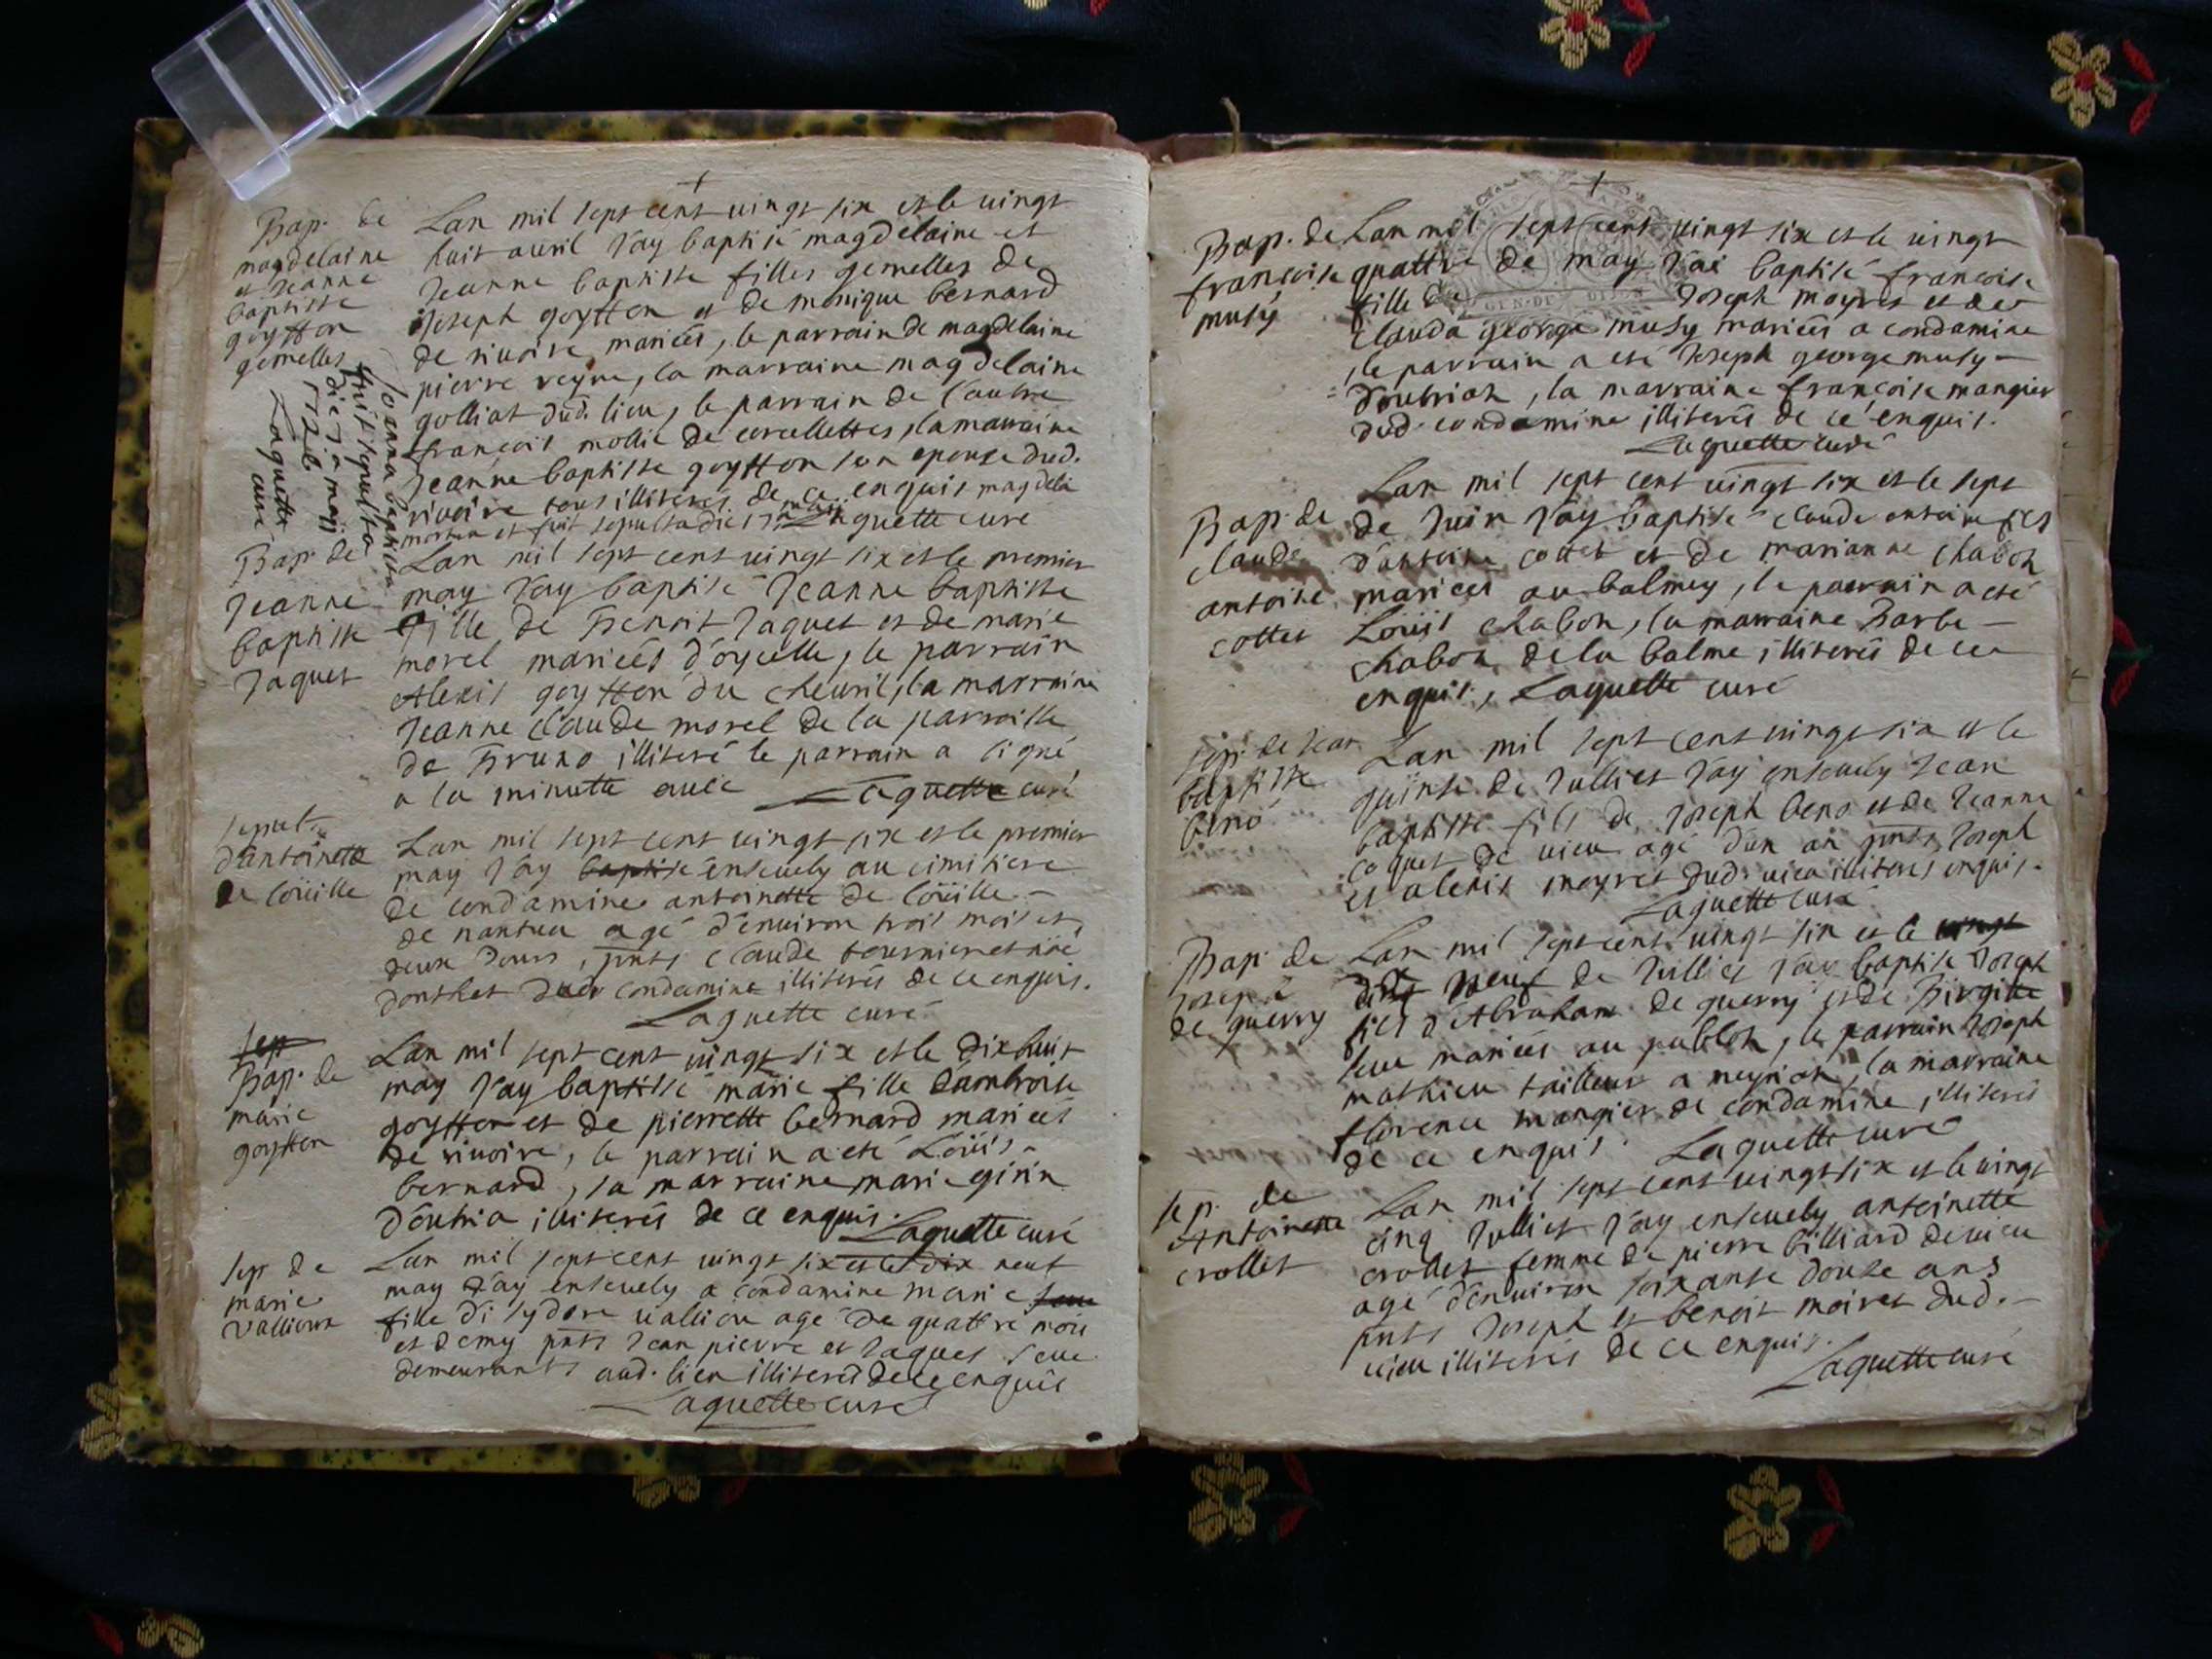 Bap. de
magdelaine
et Jeanne
baptiste
goytton
gemelles
Joanna baptista
fuit sepulta
die 7a maij
1726
Laguette
curé
Lan mil sept cent vingt six et le vingt
huit auril J'ay baptisé magdelaine et
Jeanne baptiste filles gemelles de
Joseph goytton et de monique bernard
de riuoire mariées, le parrain de magdelaine
pierre reyne, la marraine magdelaine
golliat dud. lieu, le parrain de l'autre
françois mollie de corcellettes, la marraine
Jeanne baptiste goytton son epouse dud.
riuoire tous illiterés de ce enquis magdela
mortua et fuit sepulta die maij Laguette curé
Bap. de
Jeanne
baptiste
Jaquet
Lan mil sept cent vingt six et le premier
may J'ay baptisé Jeanne baptiste
fille de Benoit Jaquet et de marie
morel mariées d'oycelle, le parrain
Alexis goytton du cheuril, la marraine
Jeanne Claude morel de la parroisse
de Bruno illiteré le parrain a signé
a la minutte auec Laguette curé
sepult.
d'antoinette
de Coüille
Lan mil sept cent vingt six et le premier
may J'ay baptisé enseuely au cimitiere
de condamine antoinette de Coüille
de nantua agé d'enuiron trois mois et
deux Jours, pnts Claude tournier et
donthet dud. condamine illiterés de ce enquis.
Laguette curé
sep
Bap. de
marie
goytton
Lan mil sept cent vingt six et le dixhuit
may J'ay baptisé marie fille d'ambroise
goytton et de pierrette bernard mariées
de riuoire, le parrain a eté Loüis
bernard, la marraine marie girin
d'outria illiterés de ce enquis.
Laguette curé
sep de
marie
Vallioux
Lan mil sept cent vingt six et le dix neuf
may J'ay enseuely a condamine marie seue
fille d'isydore ualliou agé de quattre mois
et demy pnts Jean pierre et Jaques seue
demeurants aud. lieu illiterés de ce enquis
Laguette curé
Bap. de
françoise
musy
Lan mil sept cent vingt six et le uingt
quattre de may J'ai baptisé francoise
fille de Joseph moyret et de
Clauda george musy mariées a condamine
, le parrain a eté Joseph george musy
d'outriaz, la marraine françoise mangier
dud. condamine illiterés de ce enquis.
Laguette curé
Bap. de
claude
antoine
cottet
Lan mil sept cent vingt six et le sept
de Juin J'ay baptisé claude antoine fils
d'antoine cottet et de marianne chabon
mariées au balmey, le parrain a eté
Loüis chabon, la marraine Barbe
chabon de la balme illiterés de ce
enquis, Laguette curé
sep. de Jean
baptiste
beno
Lan mil sept cent vingt six et le
quinse de Julliet J'ay enseuely Jean
baptiste fils de Joseph beno et de Jeanne
coquet de uieu agé d'un an pnts Joseph
et alexis moyret dud. uieu illiterés enquis.
Laguette curé
Bap. de
Joseph
de guerry
Lan mil sept cent vingt six et le vingt
dix neuf de Julliet J'ay baptisé Joseph
fils d'Abraham de guerry et de Birgitte
seue mariées au publoz, le parrain Joseph
mathieu tailleur a meyriat, la marraine
florence mangier de condamine illiterés
de ce enquis. Laguette curé
sep. de
Antoinette
crollet
Lan mil sept cent vingt six et le vingt
cinq Julliet J'ay enseuely antoinette
crollet femme de pierre billiard de uieu
agé d'enuiron soixante douze ans
pnts Joseph et benoit moiret dud.
uieu illiterés de ce enquis.
Laguette curé